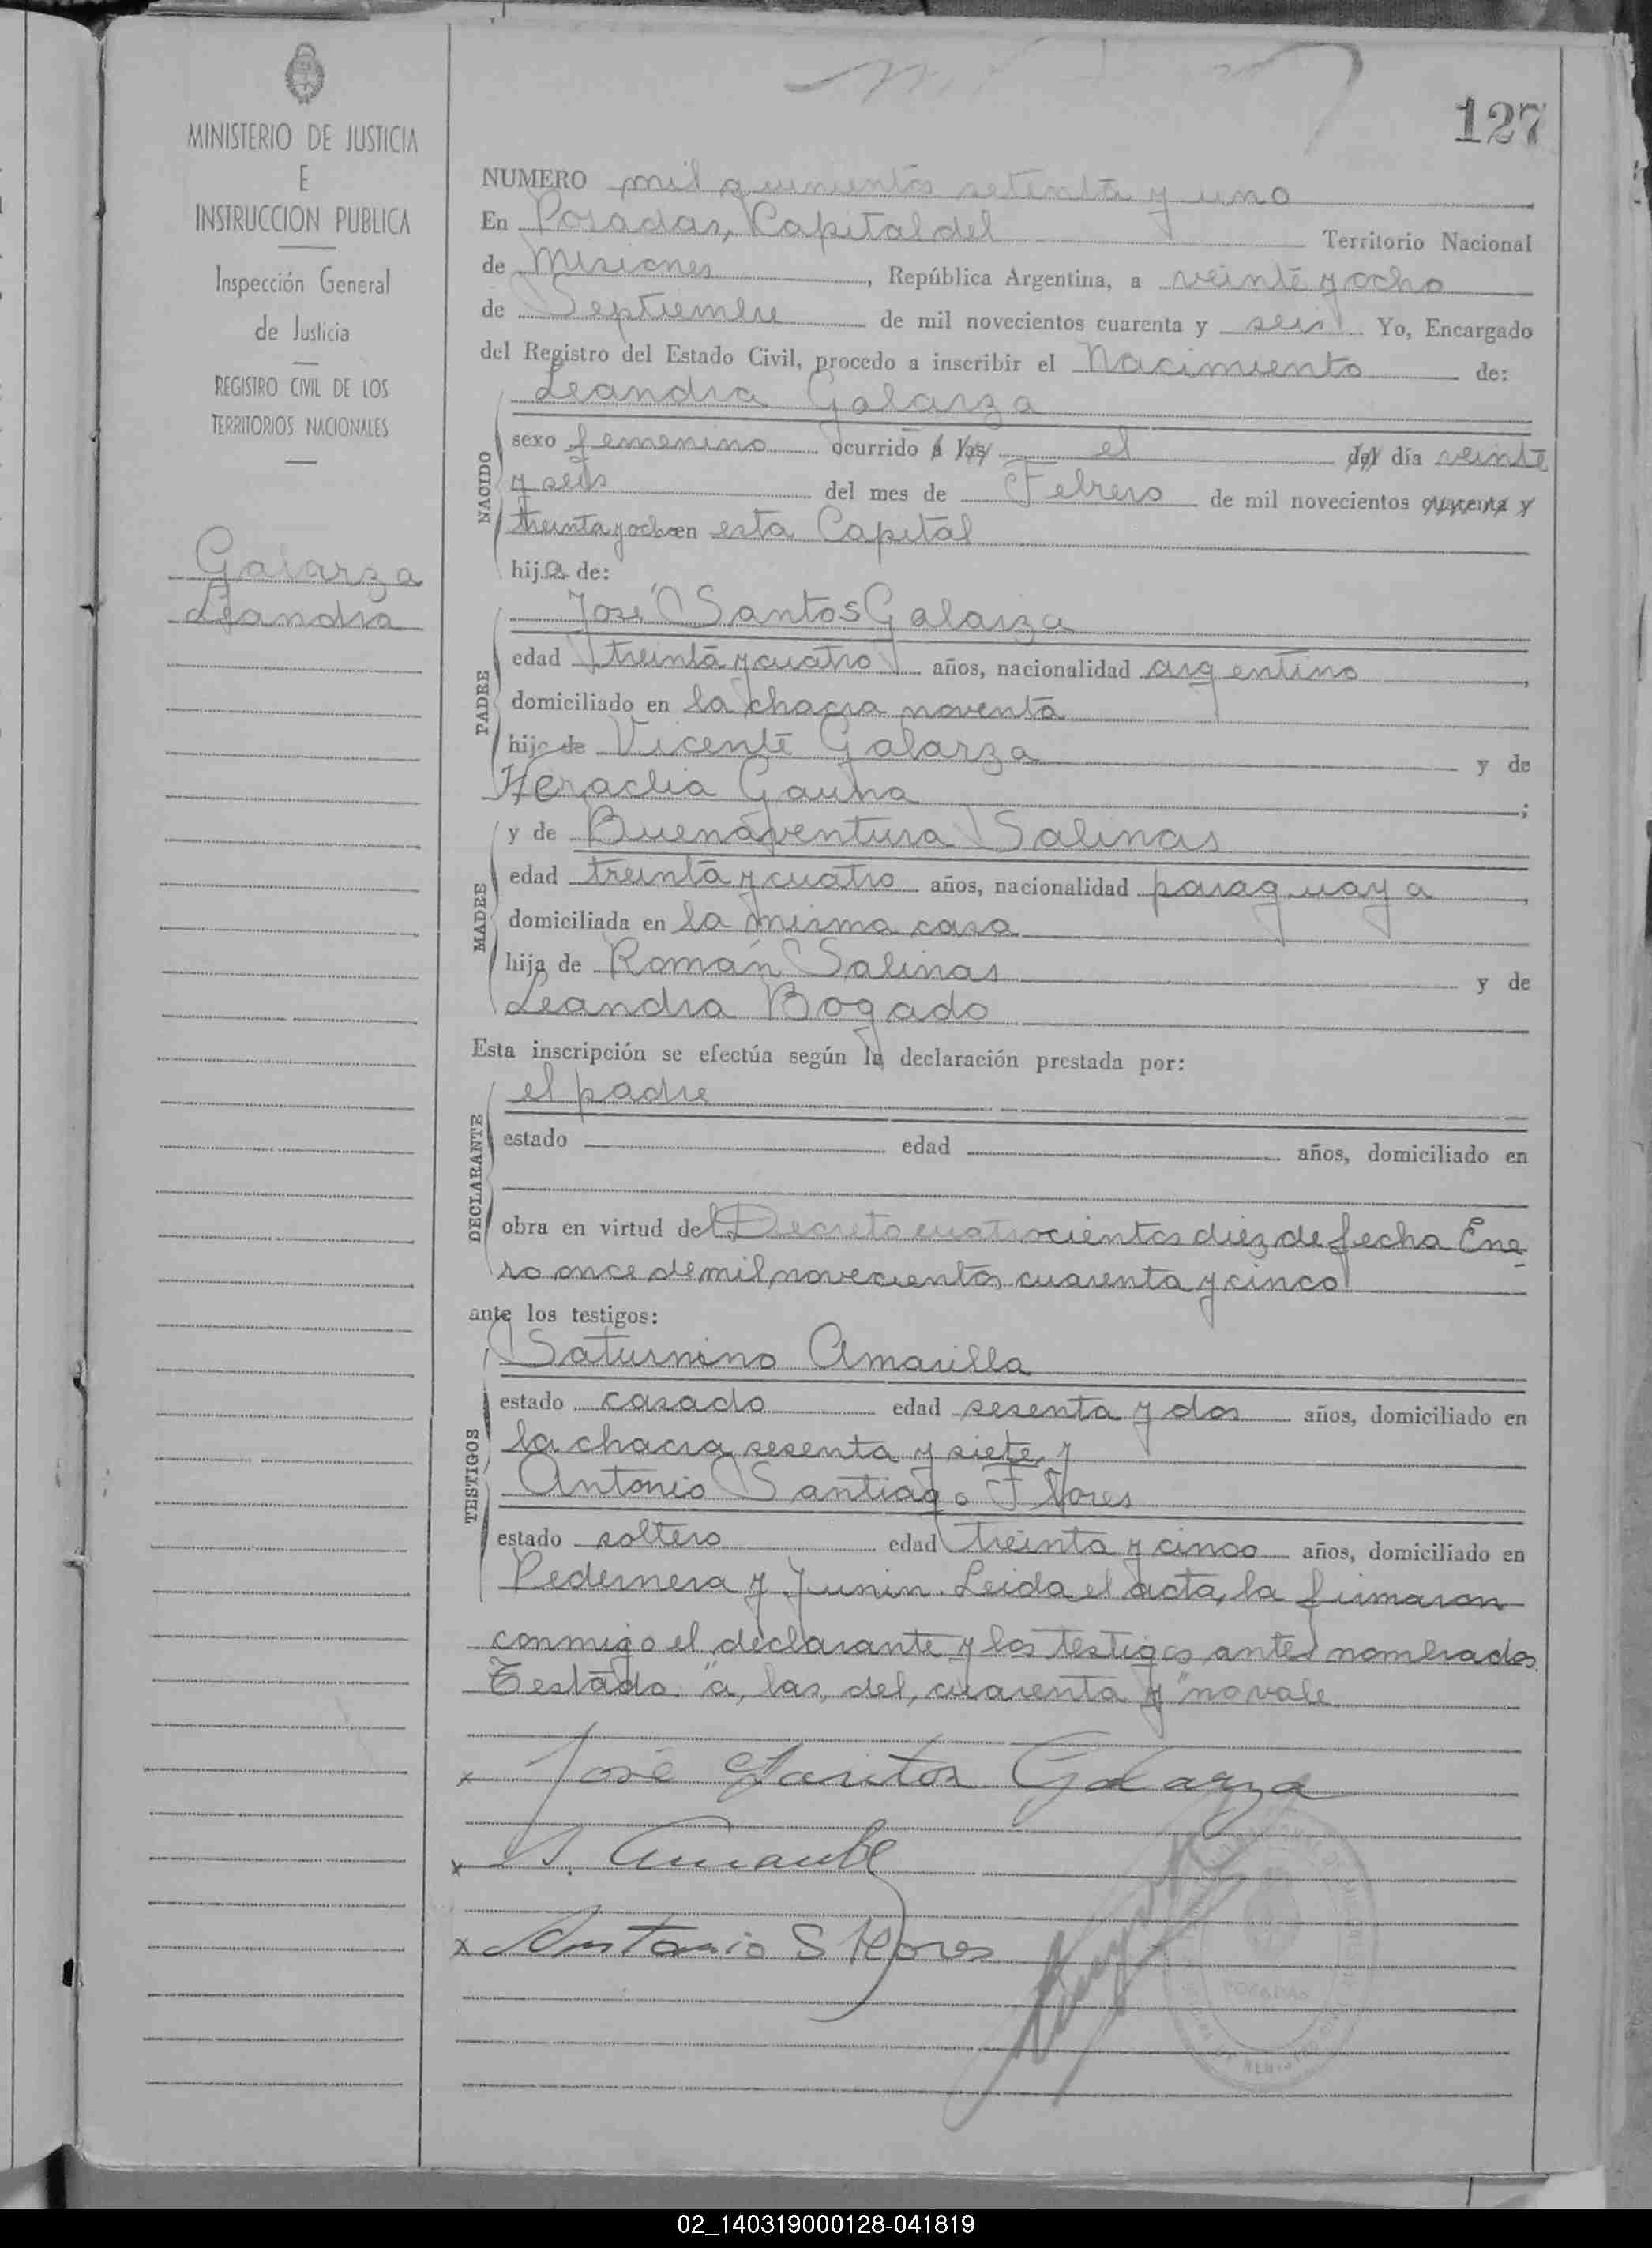 127
MINISTERIO DE JUSTICIA
E
INSTRUCCION PUBLICA
Inspección General
de Justicia
REGISTRO CIVIL DE LOS
TERRITORIOS NACIONALES
Galarza
Leandra
NUMERO mil quinientos setenta y uno
En Posadas, Capital del Territorio Nacional
de Misiones, República Argentina, a veinte y ocho
de Septiembre de mil novecientos cuarenta y seis Yo, Encargado
del Registro del Estado Civil, procedo a inscribir el Nacimiento de:
NACIDO
Leandra Galarza
sexo femenino ocurrido á las el del día veinte
y seis del mes de Febrero de mil novecientos cuarenta y
treinta y ocho en esta Capital
hija de:
PADRE
José Santos Galarza
edad treinta y cuatro años, nacionalidad argentino,
domiciliado en la chacra noventa
hijo de Vicente Galarza y de
Heraclia Gauna;
MADRE
y de Buenaventura Salinas
edad treinta y cuatro años, nacionalidad paraguaya,
domiciliada en la misma casa
hija de Román Salinas y de
Leandra Bogado
Esta inscripción se efectúa según la declaración prestada por:
DECLARANTE
el padre
estado edad años, domiciliado en
obra en virtud del Decreto cuatrocientos diez de fecha Ene-
ro once de mil novecientos cuarenta y cinco
ante los testigos:
TESTIGOS
Saturnino Amarilla
estado casado edad sesenta y dos años, domiciliado en
la chacra sesenta y siete y
Antonio Santiago Flores
estado soltero edad treinta y cinco años, domiciliado en
Pedernera y Junin. Leida el acta, la firmaron
conmigo el declarante y los testigos antes nombrados.
Testado "a, las, del, cuarenta y" no vale
x José Santos Galarza
x S. Amarilla
x Antonio S Flores
POSADAS
02_140319000128-041819